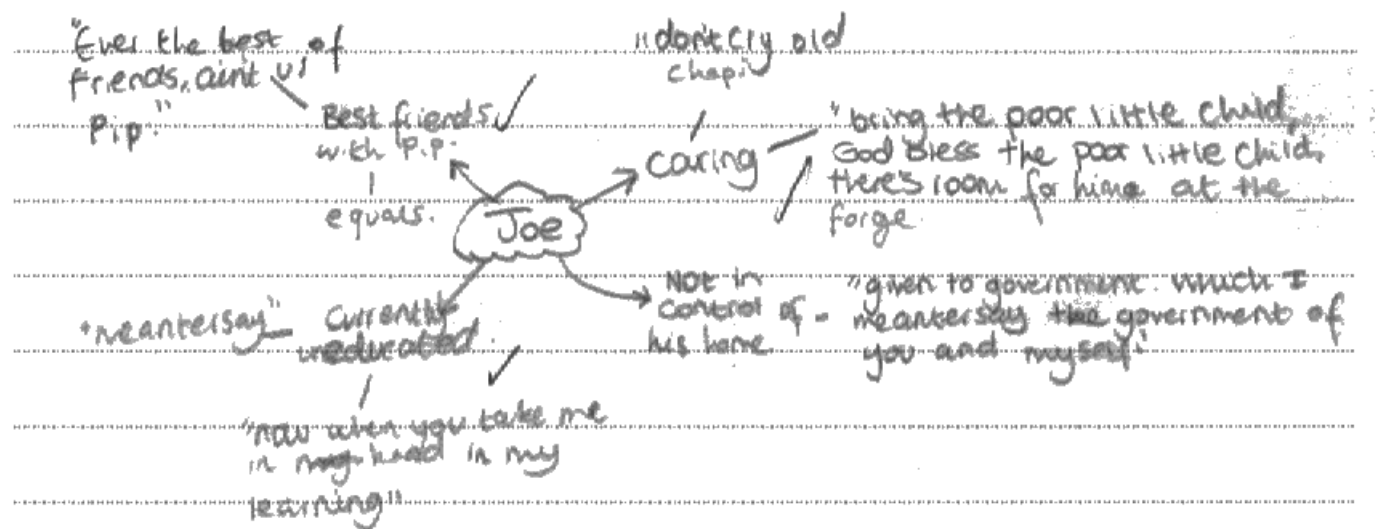 "Ever the best of
friends, aint us
Pip."
Best friends
with Pip.
equals.
Joe
"don't cry old
chap.
caring
"bring the poor little child,
God Bless the poor little child,
there's room for him at the
forge
NOT in
control of
his home
"given to government. Which I
meantersay the government of
you and myself."
Currently
uneducated.
"meantersay"
"now when you take me
in hand in my
learning"